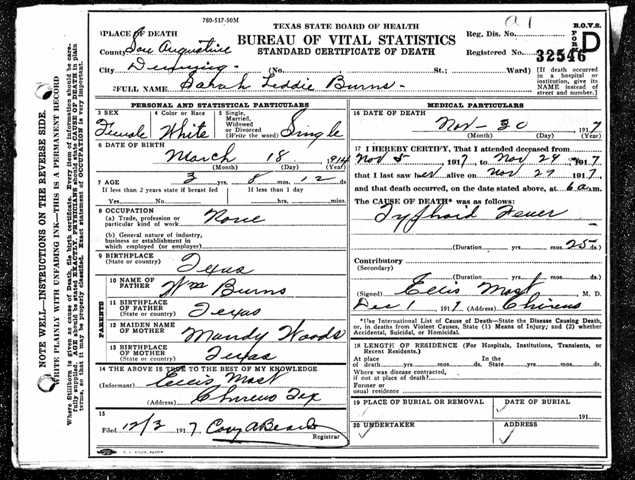 760-517-50M
TEXAS STATE BOARD OF HEALTH
BUREAU OF VITAL STATISTICS
STANDARD CERTIFICATE OF DEATH
B.O.V.S.
FORM D
Reg. Dis. No.
Registered No. 32546
PLACE OF DEATH
County San Augustine
City Denning (No. St.; Ward)
[If death occurred in a hospital or institution, give its NAME instead of street and number.]
FULL NAME Sarah Liddie Burns.
PERSONAL AND STATISTICAL PARTICULARS
3 SEX Female
4 Color or Race White
5 Single, Married, Widowed or Divorced (Write the word) Single
6 DATE OF BIRTH
March 18, 1914
(Month) (Day) (Year)
7 AGE 3 yrs. 8 mos. 12 ds.
If less than 2 years state if breast fed If less than 1 day
8 OCCUPATION
(a) Trade, profession or particular kind of work None
(b) General nature of industry, business or establishment in which employed (or employer)
9 BIRTHPLACE (State or country) Texas
PARENTS
10 NAME OF FATHER Wm Burns
11 BIRTHPLACE OF FATHER (State or country) Texas
12 MAIDEN NAME OF MOTHER Mandy Woods
13 BIRTHPLACE OF MOTHER (State or country) Texas
14 THE ABOVE IS TRUE TO THE BEST OF MY KNOWLEDGE
(Informant) Ellis Mast
(Address) Chireno Tex
15
Filed 12/3 1917 Registrar
MEDICAL PARTICULARS
16 DATE OF DEATH
Nov - 30 1917
(Month) (Day) (Year)
17 I HEREBY CERTIFY, That I attended deceased from
Nov 5 1917 to Nov 29 1917
that I last saw her alive on Nov 27 1917
and that death occurred, on the date stated above, at 6 a.m.
The CAUSE OF DEATH* was as follows:
Typhoid Fever
(Duration) yrs. mos. 25 ds.
Contributory
(Secondary)
(Duration) yrs. mos. ds.
(Signed) Ellis Mast M. D.
Dec 1 1917 (Address) Chireno
*Use International List of Cause of Death—State the Disease Causing Death, or, in deaths from Violent Causes, State (1) Means of Injury; and (2) whether Accidental, Suicidal, or Homicidal.
18 LENGTH OF RESIDENCE (For Hospitals, Institutions, Transients, or Recent Residents.)
At place of death yrs. mos. ds. In the State yrs. mos. ds.
Where was disease contracted, if not at place of death?
Former or usual residence
19 PLACE OF BURIAL OR REMOVAL
DATE OF BURIAL
191
20 UNDERTAKER
ADDRESS
NOTE WELL—INSTRUCTIONS ON THE REVERSE SIDE.
WRITE PLAINLY WITH UNFADING INK—THIS IS A PERMANENT RECORD